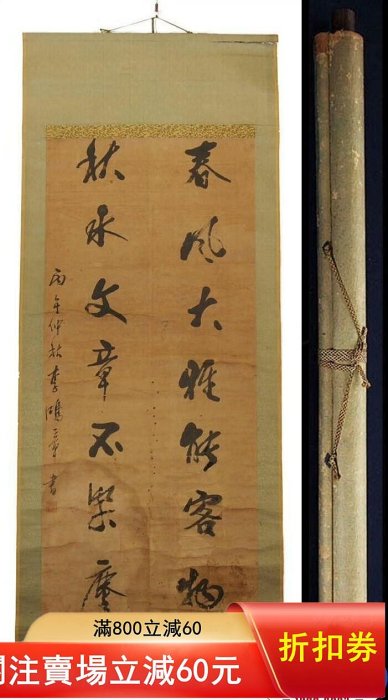 春風大雅能容物
秋水文章不染塵
丙午仲秋李鴻章書
滿800立減60
注賣場立減60元
折扣券